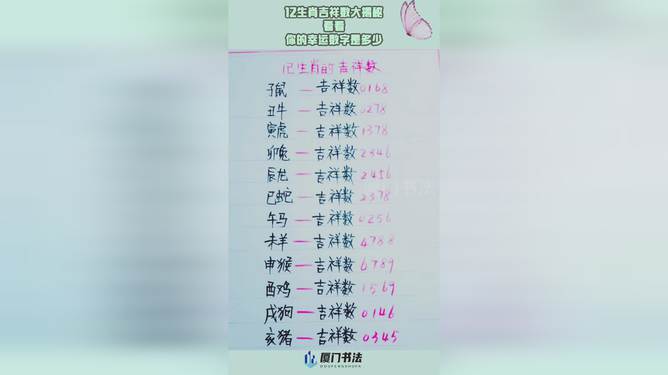 12生肖吉祥数大揭秘
看看
你的幸运数字是多少
12生肖的吉祥数
子鼠—吉祥数0168
丑牛—吉祥数0278
寅虎—吉祥数1378
卯兔—吉祥数2346
辰龙—吉祥数2456
巳蛇—吉祥数2378
午马—吉祥数0256
未羊—吉祥数4788
申猴—吉祥数6789
酉鸡—吉祥数1569
戌狗—吉祥数0146
亥猪—吉祥数0345
厦门书法